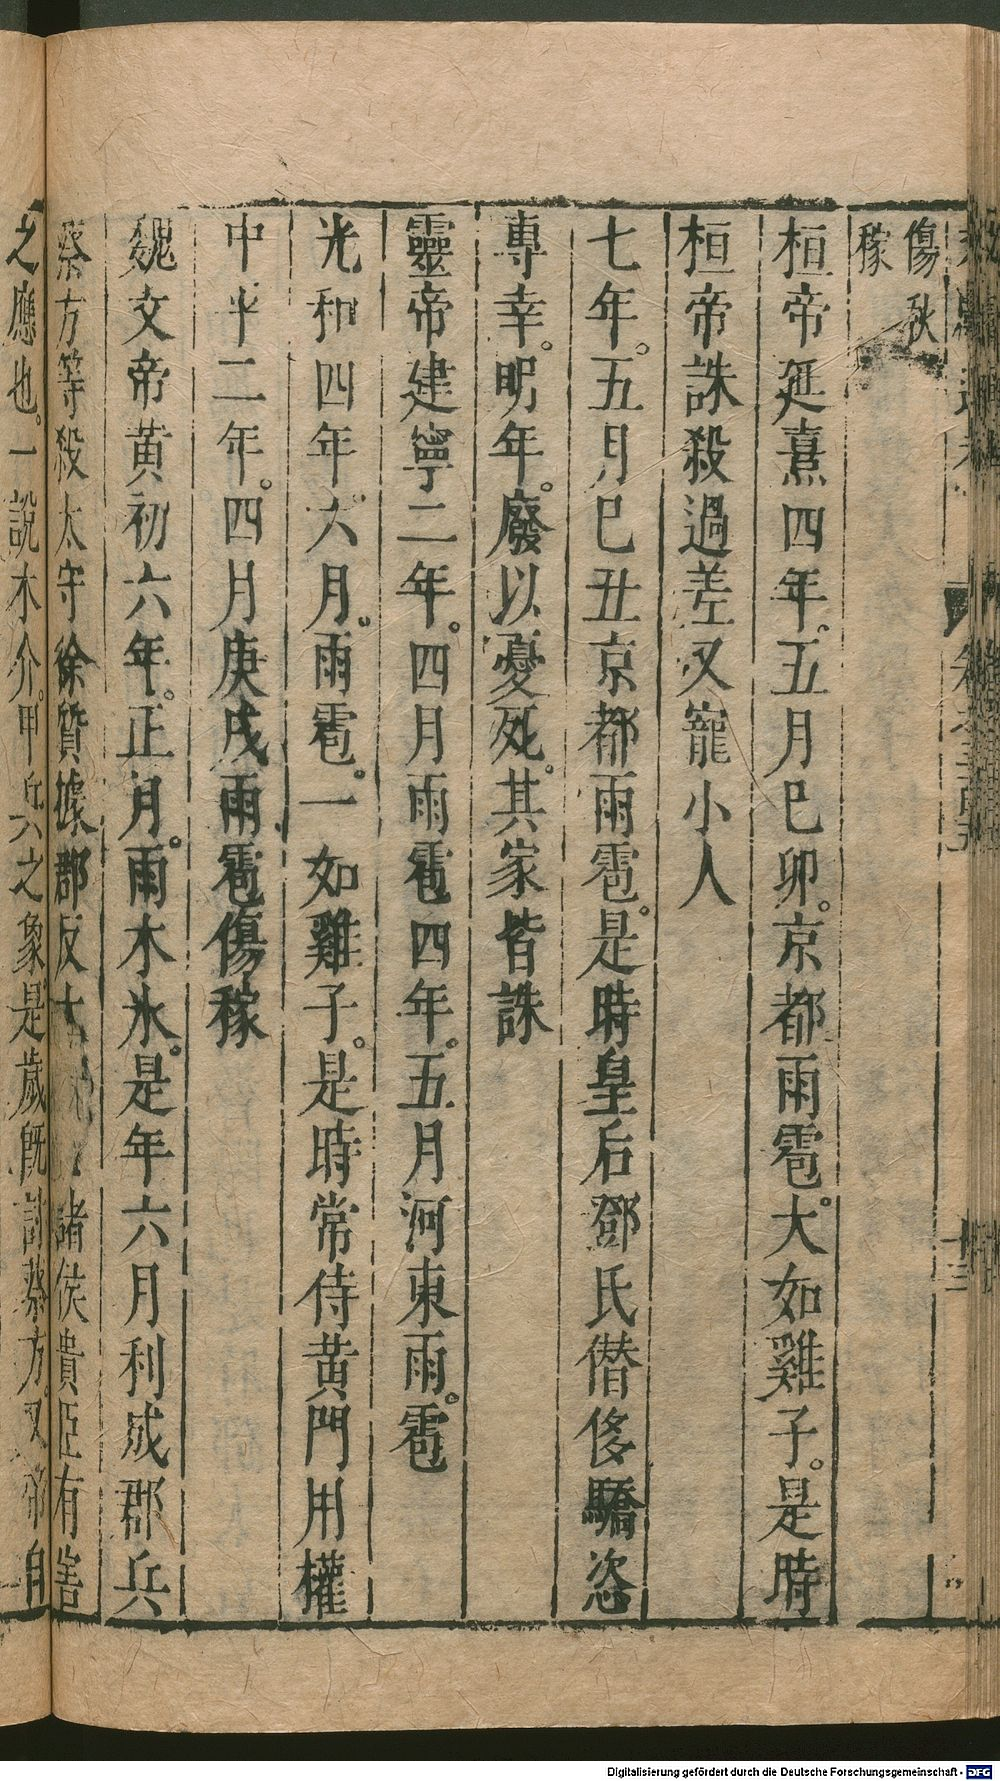 傷秋
稼
桓帝延熹四年五月巳卯京都雨雹大如雞子是時
桓帝誅殺過差又寵小人
七年五月巳丑京都雨雹是時皇后鄧氏僭侈驕恣
專幸明年廢以憂死其家皆誅
靈帝建寧二年四月雨雹四年五月河東雨雹
光和四年六月雨雹一如雞子是時常侍黃門用權
中平二年四月庚戌雨雹傷稼
魏文帝黃初六年正月雨木氷是年六月利成郡兵
蔡方等殺太守徐質據郡反 諸侯貴臣有害
之應也一說木介甲兵之象是歲既討蔡方又帝自
Digitalisierung gefördert durch die Deutsche Forschungsgemeinschaft - DFG